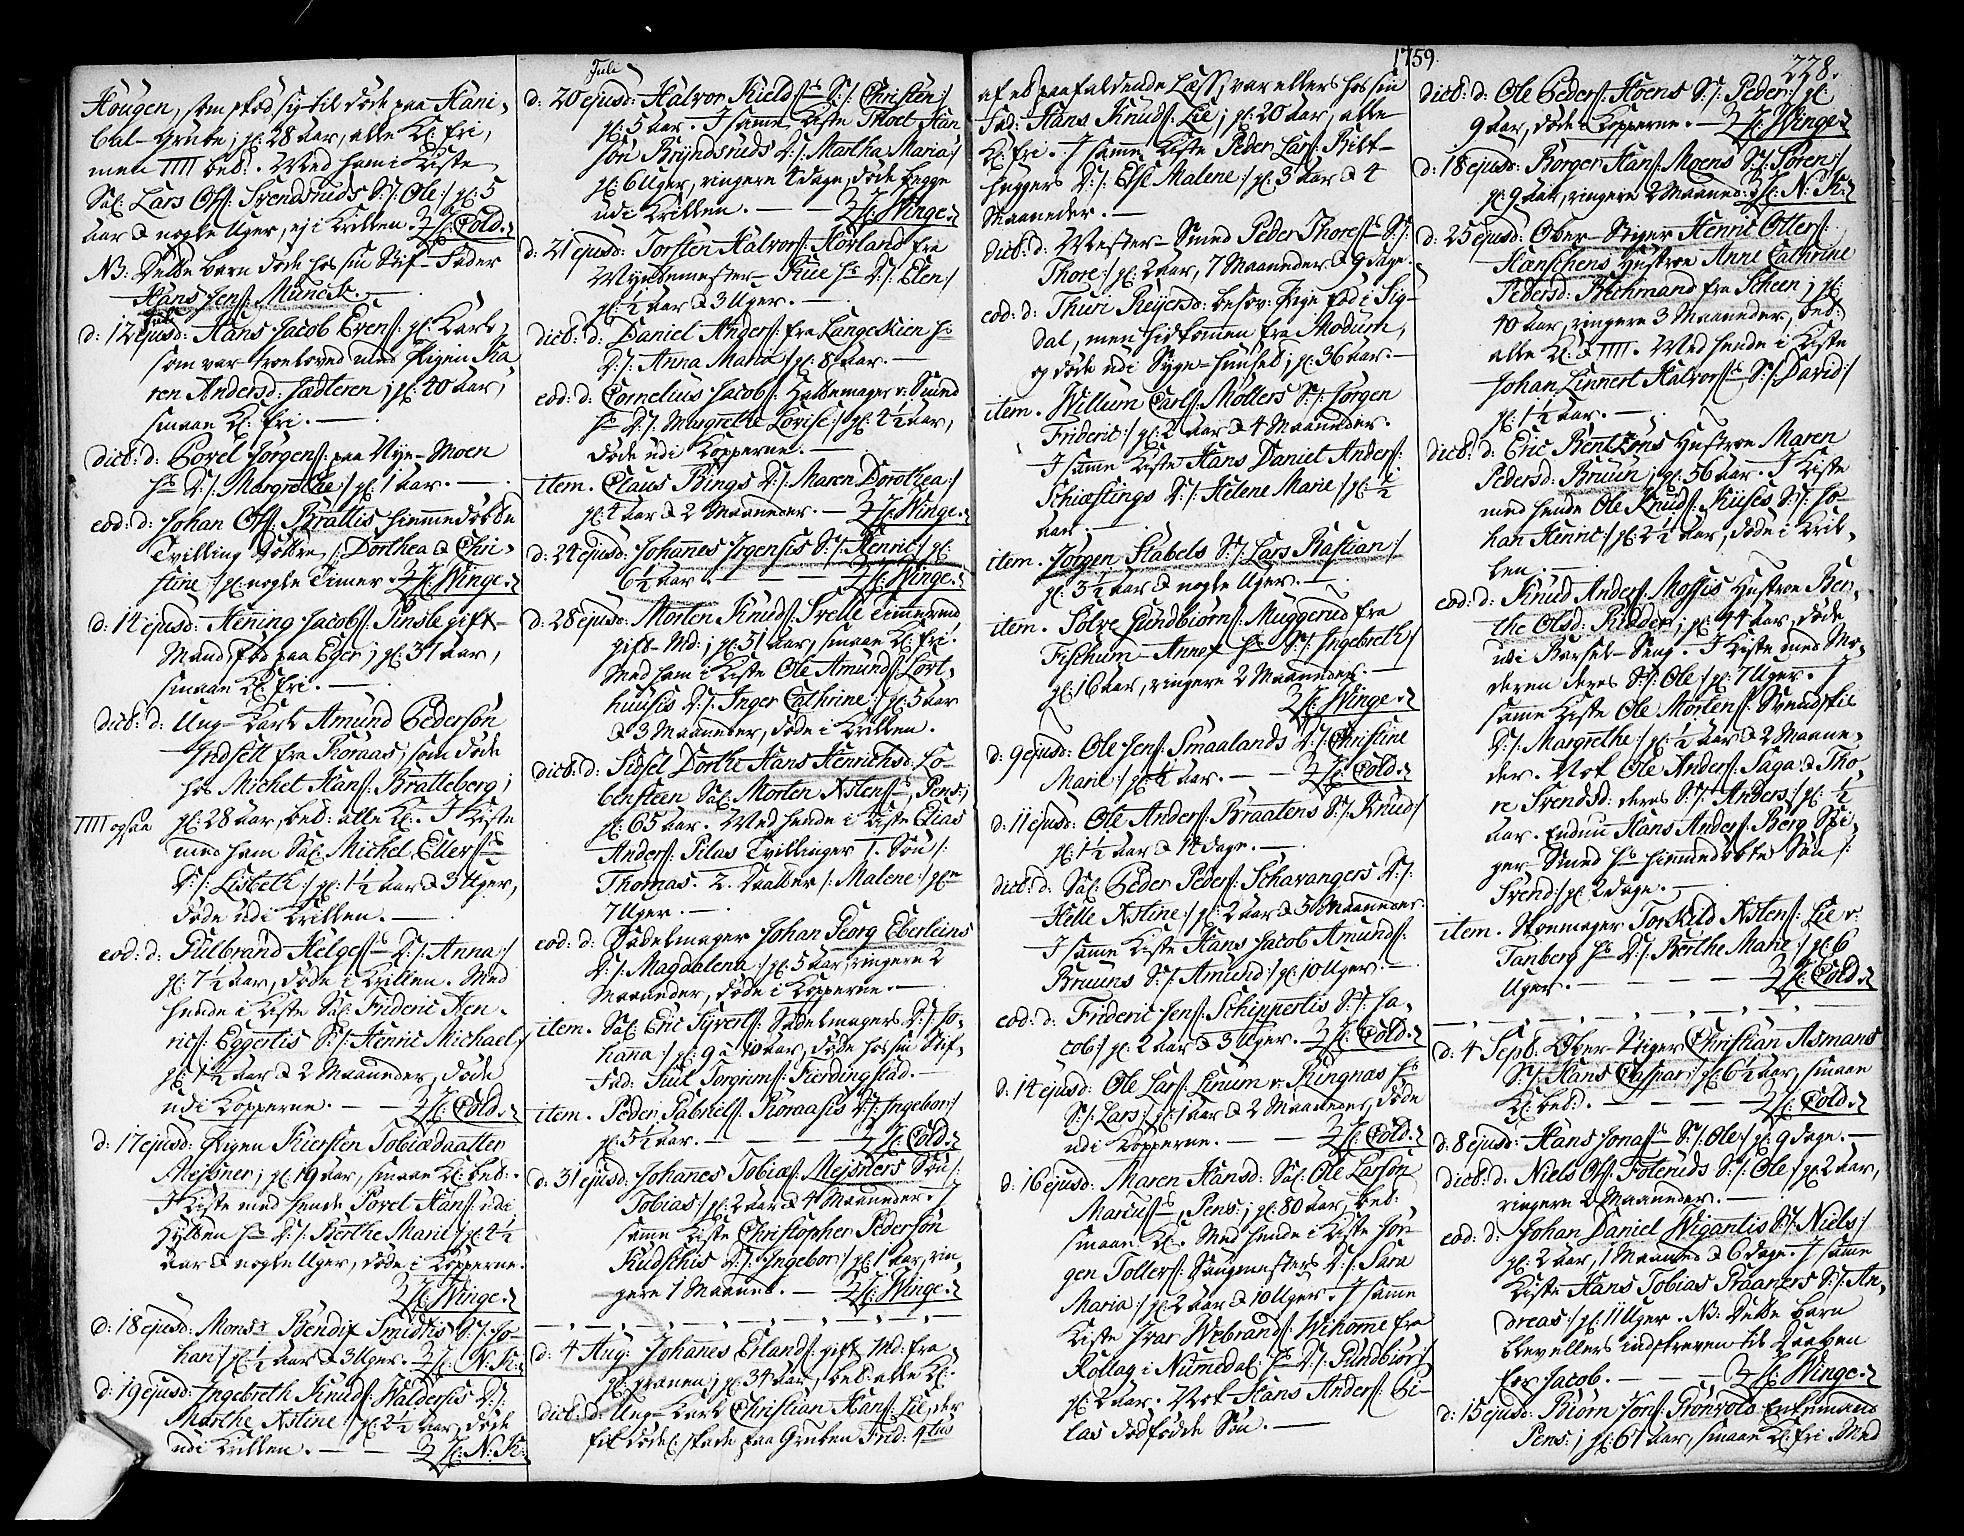 1759.
228.
Hougen, som skød sig til døde paa Hani-
bal-Grube; gl: 28 aar, alle Kl: fri,
men IIII bet:. Med ham i Kiste
Sal: Lars Olss: Svendsruds S:/: Ole:/ gl: 5
aar & nogle Uger, ej i Kritten. Cold.
NB: Dette barn døde hos sin Stif-Fader
Hans Jens: Munck.
Juli
d: 12 ejusd: Hans Jacob Evens: gl: Karl,
som var trolovet med Pigen Ka-
ren Andersd: Sadteren; gl: 40 aar,
smaae Kl: fri.
dict: d: Povel Jørgens: paa Nye-Moen
hs D:/: Margrethe:/ gl: 1 aar.
eod: d: Johan Olss: Brattis hiemmedøbte
Tvilling Døttre, /: Dorthea & Chri-
stine:/ gl: nogle Timer. Winge.
d: 14 ejusd: Henning Jacobs: Pinsle gift-
Mand, fød paa Eger; gl: 31 aar,
smaae Kl: fri.
dict: d: Ung-Karl Amund Pedersøn
Indsett fra Røraas, som døde
hos Michel Hans: Bratteberg;
IIII ogsaa gl: 28 aar, bet: alle Kl:. I Kiste
med ham Sal: Michel Ellers:
D:/: Lisbeth:/ gl: 1½ aar & 3 Uger,
døde udi Kritten.
eod: d: Gulbrand Helges: D:/: Anna:/
gl: 7½ aar, døde i Kritten. Med
hende i Kiste Sal: Frideric Hen-
rics: Eggertis S:/: Henric Michael:/
gl: 1½ aar & 2 Maaneder, døde
udi Kopperne. Cold.
d: 17 ejusd: Pigen Kiersten Tobiædaatter
Meissner; gl: 19 aar, smaae Kl: bet:.
I Kiste med hende Povel Hans: udi
Hytten hs D:/: Berthe Marie:/ gl: 4½
aar & nogle Uger, døde i Kopperne.
Winge.
d: 18 ejusd: Monsr Bendix Smidtis S:/: Jo-
han:/ gl: ½ aar & 3 Uger. N: K:
d: 19 ejusd: Ingebreth Knuds: Walders D:/:
Marthe Astine:/ gl: 2½ aar, døde
udi Kritten. N: K:
Juli
d: 20 ejusd: Halvor Kields: S:/: Christen:/
gl: 5 aar. I samme Kiste Thoel Han-
søn Bryndsruds D:/: Martha Maria:/
gl: 6 Uger, ringere 4 dage, døde begge
udi Kritten. Winge.
d: 21 ejusd: Torsten Halvors: Hovland fra
Myntmester-Rue hs D:/: Elen:/
gl: ½ aar & 3 Uger.
dict: d: Daniel Anders: fra Langeskien hs
D:/: Anna Maria:/ gl: 8 aar.
eod: d: Cornelius Jacobs: Hattemager v: Sund
hs D:/: Margrethe Lovise:/ gl: 4½ aar,
døde udi Kopperne.
item. Claus Bings D:/: Maren Dorothea:/
gl: 4 aar & 2 Maaneder. Winge.
d: 24 ejusd: Johannes Irgensis S:/: Henric:/ gl:
6½ aar. Winge.
d: 28 ejusd: Morten Knuds: Svelle Timmermd
gift-Md:; gl: 51 aar, smaae Kl: fri.
Med ham i Kiste Ole Amunds: Lort-
huusis D:/: Inger Cathrine:/ gl: 5 aar
& 3 Maaneder, døde i Kritten.
dict: d: Sidsel Dorthe Hans Henrichsd: Lo-
bensteen Sal: Morten Astens:, Pens:;
gl: 65 aar. Med hende i Kiste Elias
Anders: Pilas Tvillinger 1. Søn /:
Thomas. 2. Daatter /: Malene:/ gl:
7 Uger.
eod: d: Sadelmager Johan Georg Eberleins
D:/: Magdalena:/ gl: 5 aar, ringere 2
Maaneder, døde i Kopperne.
item. Sal: Eric Syverts: Sadelmagers D:/: Jo-
hana:/ gl: 9 à 10 aar, døde hos sin Stif-
Fad: Juul Torgiems: Fierdingstad.
item. Peder Gabriels: Røraasis D:/: Ingebor:/
gl: 5½ aar. Cold.
d: 31 ejusd: Johannes Tobiæs: Meissners Søn /:
Tobias:/ gl: 2 aar & 4 Maaneder. I
samme Kiste Christopher Pedersøn
Kudschis D:/: Ingebor:/ gl: 1 aar, rin-
gere 1 Maaned. Winge.
d: 4 Aug: Johannes Erlands: gift Md: fra
Granen; gl: 34 aar, bet: alle Kl:
dict: d: Ung-Karl Christian Hans: Lie, der
fik dødel: skade paa Gruben Frid: 4tus
af et paafaldende Læss, var ellers hos sin
Fad: Hans Knuds: Lie; gl: 20 aar, alle
Kl: fri. I samme Kiste Peder Lars: Bilt-
huggers D:/: Else Malene:/ gl: 3 aar & 4
Maaneder.
dict: d: Mester-Smed Peder Thores: S:/:
Thore:/ gl: 2 aar, 7 Maaneder & 9 dage.
eod: d: Thuri Reyersd: besov: Pige fød i Sig-
dal, men hidkommen fra Modum,
og døde udi Syge-Huuset; gl: 36 aar.
item. Willum Carls: Møllers S:/: Jørgen
Frideric:/ gl: 2 aar & 4 Maaneder.
I samme Kiste Hans Daniel Anders:
Schiæstings D:/: Helene Marie:/ gl: ½
aar.
item. Jørgen Stabels S:/: Lars Bastian:/
gl: 3½ aar & nogle Uger.
item. Solve Gundbiørns: Muggerud fra
Fischum-Annex hs S:/: Ingebreth:/
gl: 16 aar, ringere 2 Maaneder.
Winge.
d: 9 ejusd: Ole Jens: Smaalands D:/: Christine
Marie:/ gl: ½ aar. Cold.
d: 11 ejusd: Ole Anders: Braatens S:/: Knud:/
gl: 1½ aar & 14 dage.
dict: d: Sal: Peder Peders: Schavangers D:/:
Helle Astine:/ gl: 2 aar & 5 Maaneder.
I samme Kiste Hans Jacob Amunds:
Bruuns S:/: Amund:/ gl: 10 Uger.
eod: d: Frideric Jens: Schippertis S:/: Ja-
cob:/ gl: 2 aar & 3 Uger. Cold.
d: 14 ejusd: Ole Lars: Linum v: Ringnæs hs
S:/: Lars:/ gl: 1 aar & 2 Maaneder, døde
udi Kopperne. Cold.
d: 16 ejusd: Maren Hansd: Sal: Ole Larsøn
Marcuss:, Pens:; gl: 80 aar, bet:
smaae Kl:. Med hende i Kiste Jør-
gen Tollers: Saugmesters D:/: Sara
Maria:/ gl: 2 aar & 10 Uger. I samme
Kiste Ivar Webrands: Wihorne fra
Rollag i Numedal hs D:/: Gundbiør:/
gl: 2 aar. Nok Hans Anders: Pi-
las dødfødde Søn.
dict: d: Ole Peders: Hoens S:/: Peder:/ gl:
9 aar, døde i Kopperne. Winge.
d: 18 ejusd: Børger Hans: Moens S:/: Søren:/
gl: 9 aar, ringere 2 Maaned: N: K:
d: 25 ejusd: Ober-Stiger Henric Otters:
Hænschens Hustroe Anne Cathrine
Pedersd: Bechmand fra Scheen; gl:
40 aar, ringere 3 Maaneder, bet:
alle Kl: & IIII. Med hende i Kiste
Johan Linnert Halvors: S:/: David:/
gl: 1½ aar.
dict: d: Eric Bentzøns Hustroe Maren
Pedersd: Bruun; gl: 56 aar. I Kiste
med hende Ole Knuds: Kiisis S:/: Jo-
han Henric:/ gl: 2½ aar, døde i Krit-
ten.
eod: d: Knud Anders: Mossis Hustroe Ben-
the Olsd: Ridder; gl: 44 aar, døde
udi Barsel-Seng. I Kiste med Mo-
deren deres S:/: Ole:/ gl: 7 Uger. I
samme Kiste Ole Mortens: Svendstie
D:/: Margrethe:/ gl: ½ aar & 2 Maane-
der. Nok Ole Anders: Saga & Tho-
re Svendsd: deres S:/: Anders:/ gl: ½
aar. Endnu Hans Anders: Berg Sti-
ger-Smed hs hiemmedøbte Søn /:
Svend:/ gl: 2 dage.
item. Skomager Torkild Astens: Lie v:
Tanberg hs D:/: Berthe Marie:/ gl: 6
Uger. Cold.
d: 4 Sept: Ober-Stiger Christian Asmans
S:/: Hans Caspar:/ gl: 6½ aar, smaae
Kl: bet:. Cold.
d: 8 ejusd: Hans Jonæs: S:/: Ole:/ gl: 9 dage.
dict: d: Niels Olss: Foleruds S:/: Ole:/ gl: 2 aar,
ringere 2 Maaneder.
eod: d: Johan Daniel Wigantis S:/: Niels:/
gl: 2 aar, 1 Maaned & 6 dage. I samme
Kiste Hans Tobias Graaners S:/: An-
dreas:/ gl: 11 Uger. NB: Dette barn
blev ellers indskreven til Daaben
for Jacob. Winge.
d: 15 ejusd: Biørn Jons: Grønvold Enkemand
Pens:; gl: 61 aar, smaae Kl: fri. Med